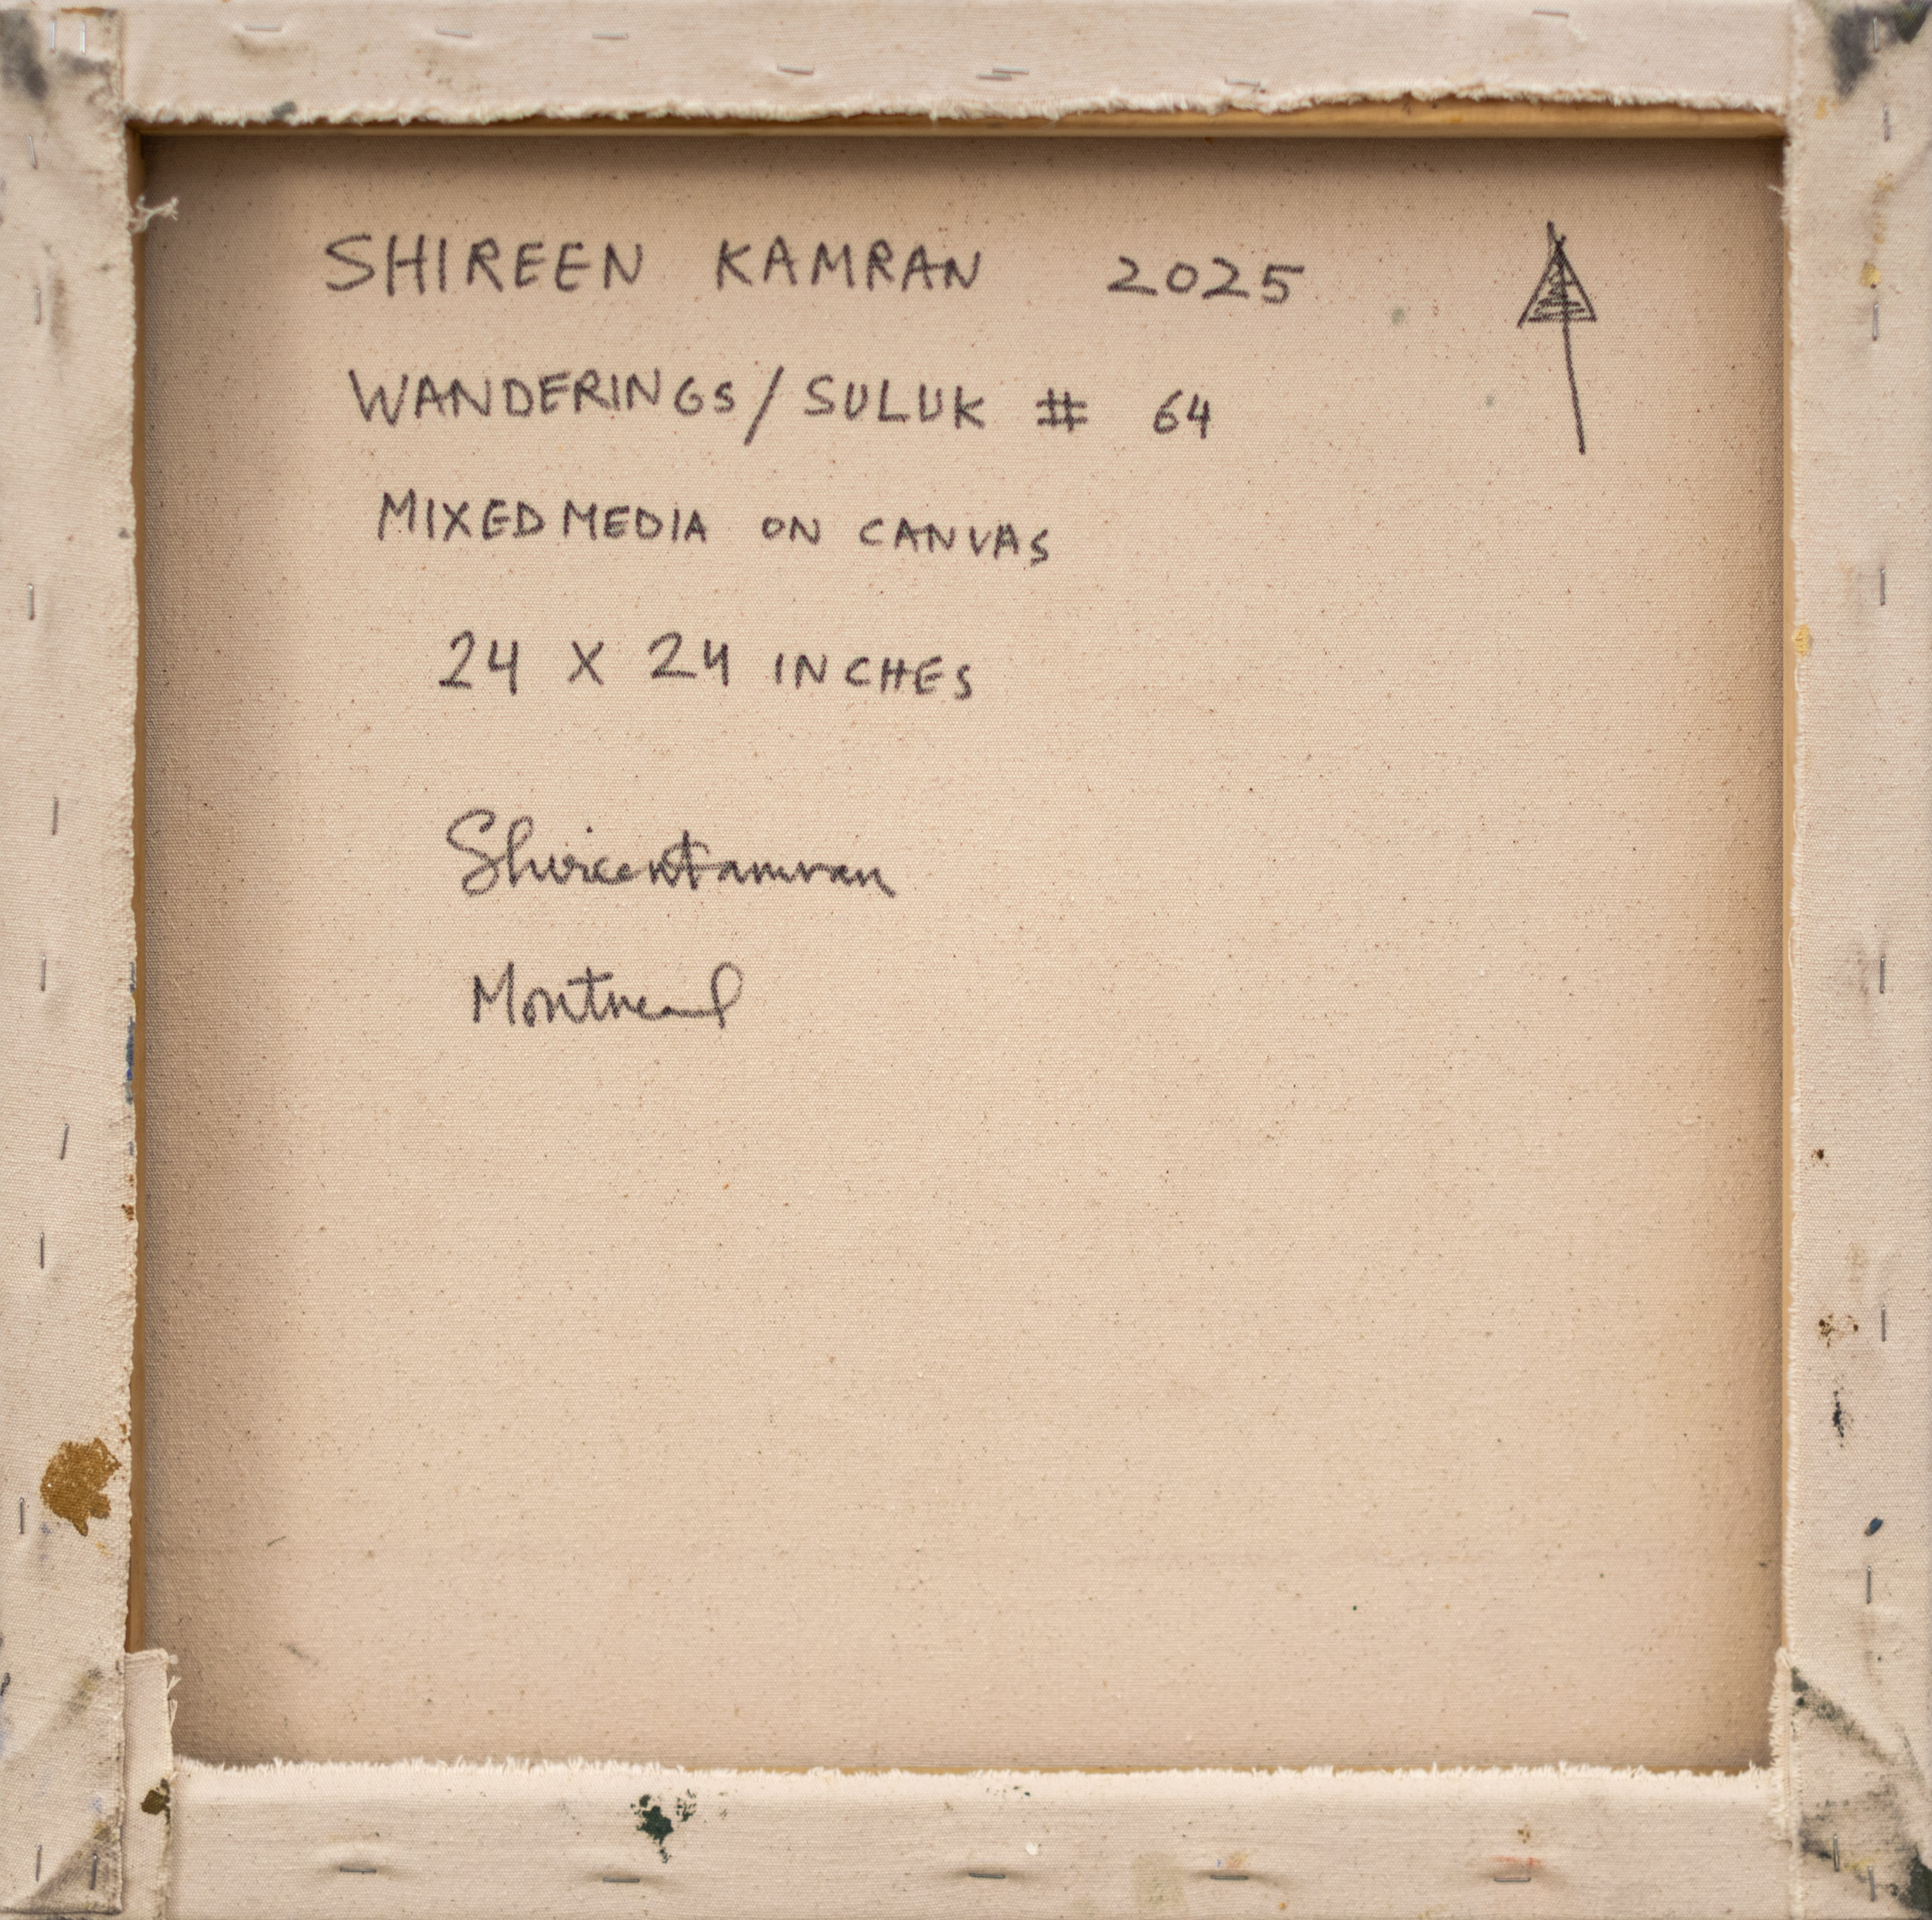 SHIREEN KAMRAN 2025
WANDERINGS/SULUK # 64
MIXED MEDIA ON CANVAS
24 X 24 INCHES
Shireen Kamran
Montreal